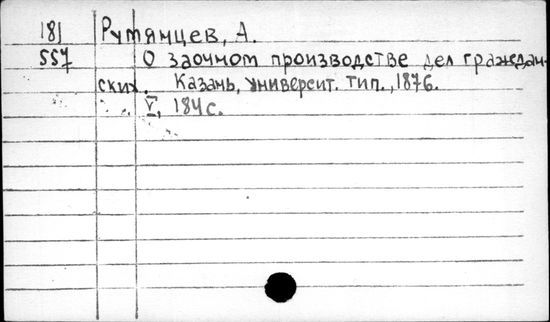 181 Румянцев, А.
557 О заочном производстве дел граждан-
ских. Казань, университ. тип., 1876.
V, 184 с.